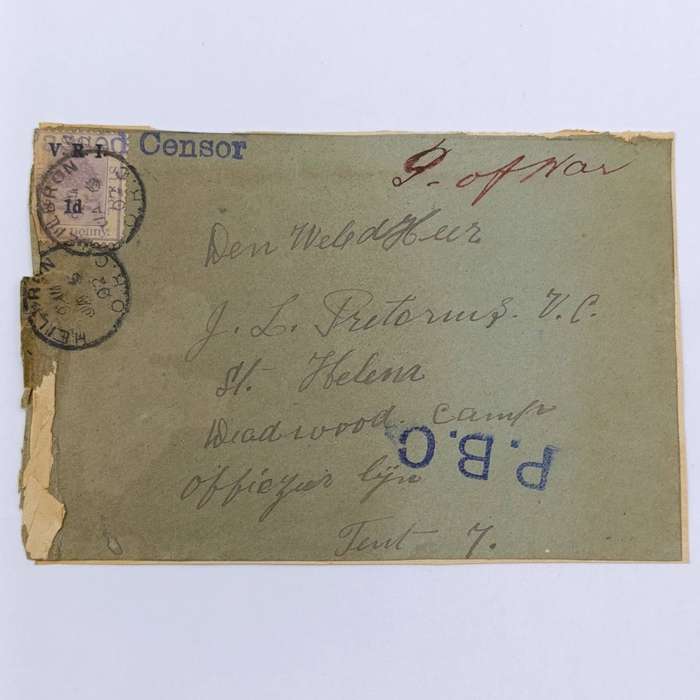 Passed Censor
V R I
1d
Penny.
HEILBRON
O.R.C.
HEILBRON
O.R.C.
P. of War
Den WeledHeer
J. L. Pretorius. V.C.
St. Helena
Deadwood Camp
Officzier lijn
Tent 7.
P.B.C.